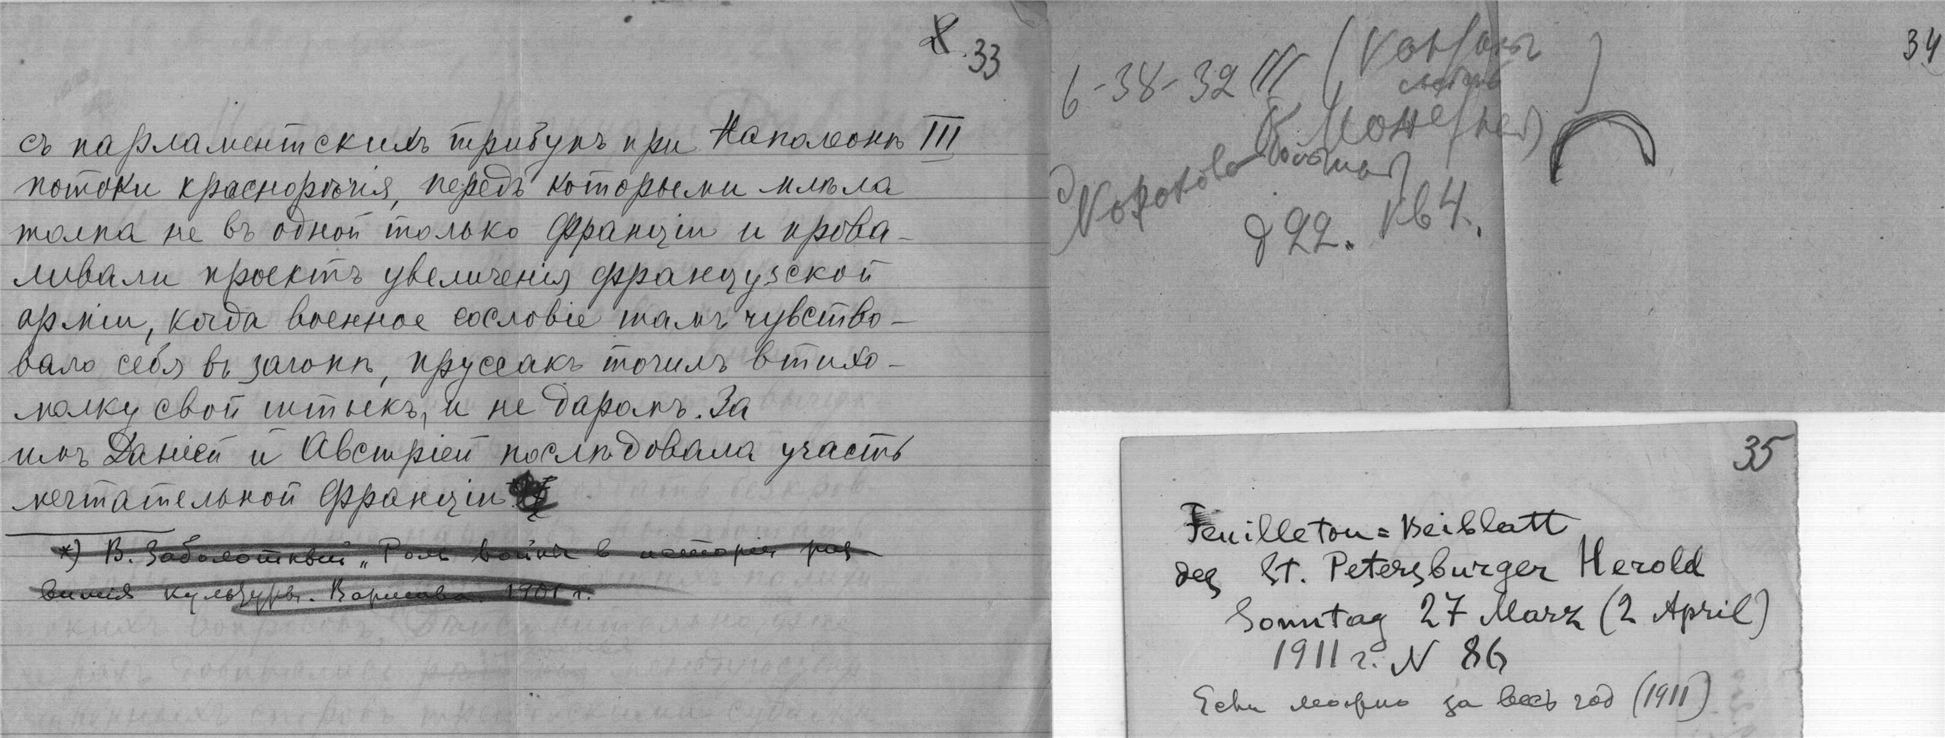 33
съ парламентскихъ трибунъ при Наполеонѣ III
потоки краснорѣчія, передъ которыми млѣла
толпа не въ одной только Франціи и прова-
ливали проектъ увеличенія французской
арміи, когда военное сословіе тамъ чувство-
вало себя въ загонѣ, пруссакъ точилъ втихо-
молку свой штыкъ, и не даромъ. За
имъ Даніей и Австріей послѣдовала участь
мечтательной Франціи
*) В. Заболотный „Роль войны в исторіи раз
витія культуры. Варшава. 1901 г.
34
6-38-32 III (
)
д 22. кв 4.
35
Feuilleton=Beiblatt
des St. Petersburger Herold
Sonntag 27 Marz (2 April)
1911 г. N 86
Если можно за весь год (1911)